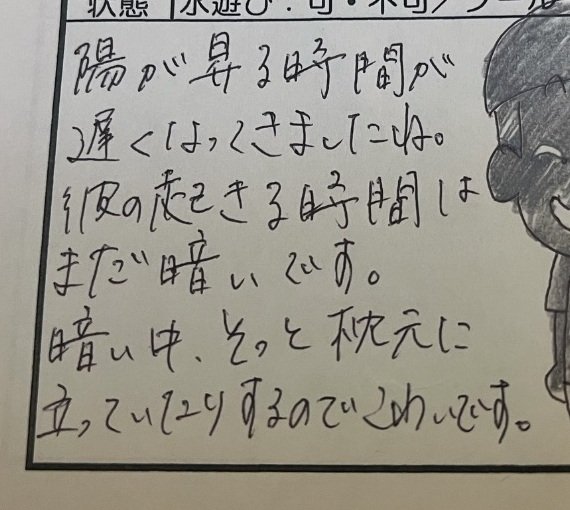 状態 水遊び：可・不可／プール
陽が昇る時間が
遅くなってきましたね。
彼の起きる時間は
まだ暗いです。
暗い中、そっと枕元に
立っていたりするのでこわいです。